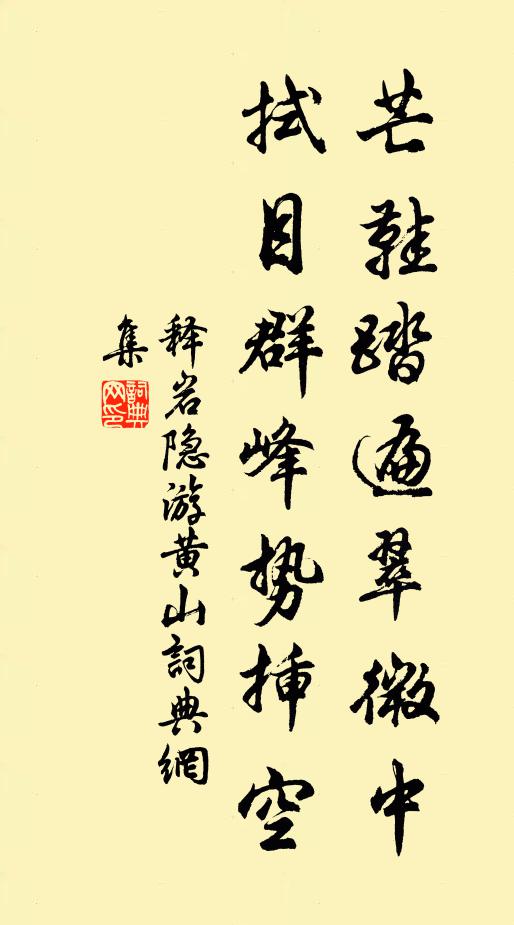 芒鞋踏遍翠微中
拭目群峰势插空
释岩隐游黄山詞典網
集
詞典
网印